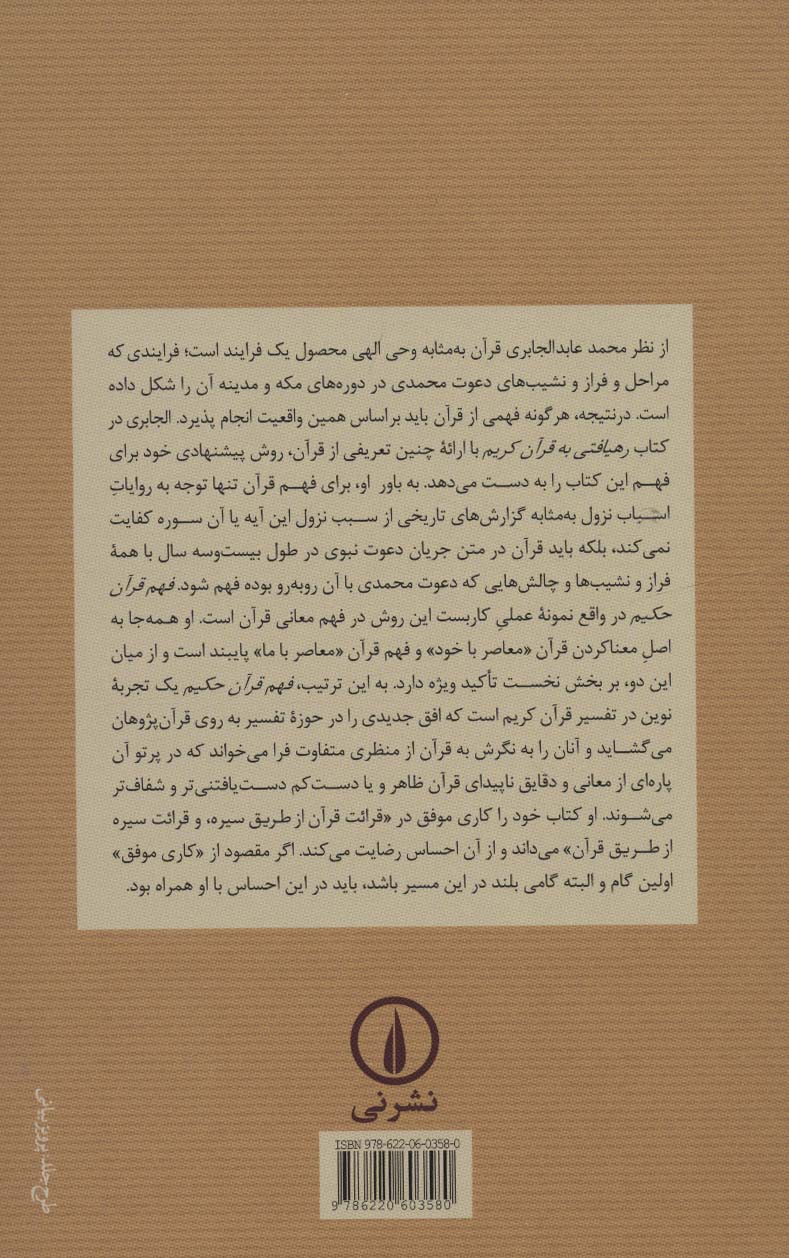 از نظر محمد عابدالجابری قرآن به‌مثابه وحی الهی محصول یک فرایند است؛ فرایندی که
مراحل و فراز و نشیب‌های دعوت محمدی در دوره‌های مکه و مدینه آن را شکل داده
است. درنتیجه، هرگونه فهمی از قرآن باید براساس همین واقعیت انجام پذیرد. الجابری در
کتاب رهیافتی به قرآن کریم با ارائهٔ چنین تعریفی از قرآن، روش پیشنهادی خود برای
فهم این کتاب را به دست می‌دهد. به باور او، برای فهم قرآن تنها توجه به روایاتِ
اسباب نزول به‌مثابه گزارش‌های تاریخی از سبب نزول این آیه یا آن سوره کفایت
نمی‌کند، بلکه باید قرآن در متن جریان دعوت نبوی در طول بیست‌وسه سال با همهٔ
فراز و نشیب‌ها و چالش‌هایی که دعوت محمدی با آن روبه‌رو بوده فهم شود. فهم قرآن
حکیم در واقع نمونهٔ عملیِ کاربست این روش در فهم معانی قرآن است. او همه‌جا به
اصلِ معناکردن قرآن «معاصر با خود» و فهم قرآن «معاصر با ما» پایبند است و از میان
این دو، بر بخش نخست تأکید ویژه دارد. به این ترتیب، فهم قرآن حکیم یک تجربهٔ
نوین در تفسیر قرآن کریم است که افق جدیدی را در حوزهٔ تفسیر به روی قرآن‌پژوهان
می‌گشاید و آنان را به نگرش به قرآن از منظری متفاوت فرا می‌خواند که در پرتو آن
پاره‌ای از معانی و دقایق ناپیدای قرآن ظاهر و یا دست‌کم دست‌یافتنی‌تر و شفاف‌تر
می‌شوند. او کتاب خود را کاری موفق در «قرائت قرآن از طریق سیره، و قرائت سیره
از طریق قرآن» می‌داند و از آن احساس رضایت می‌کند. اگر مقصود از «کاری موفق»
اولین گام و البته گامی بلند در این مسیر باشد، باید در این احساس با او همراه بود.
نشرنی
ISBN 978-622-06-0358-0
9 786220 603580
طرح جلد: پرویز بیانی